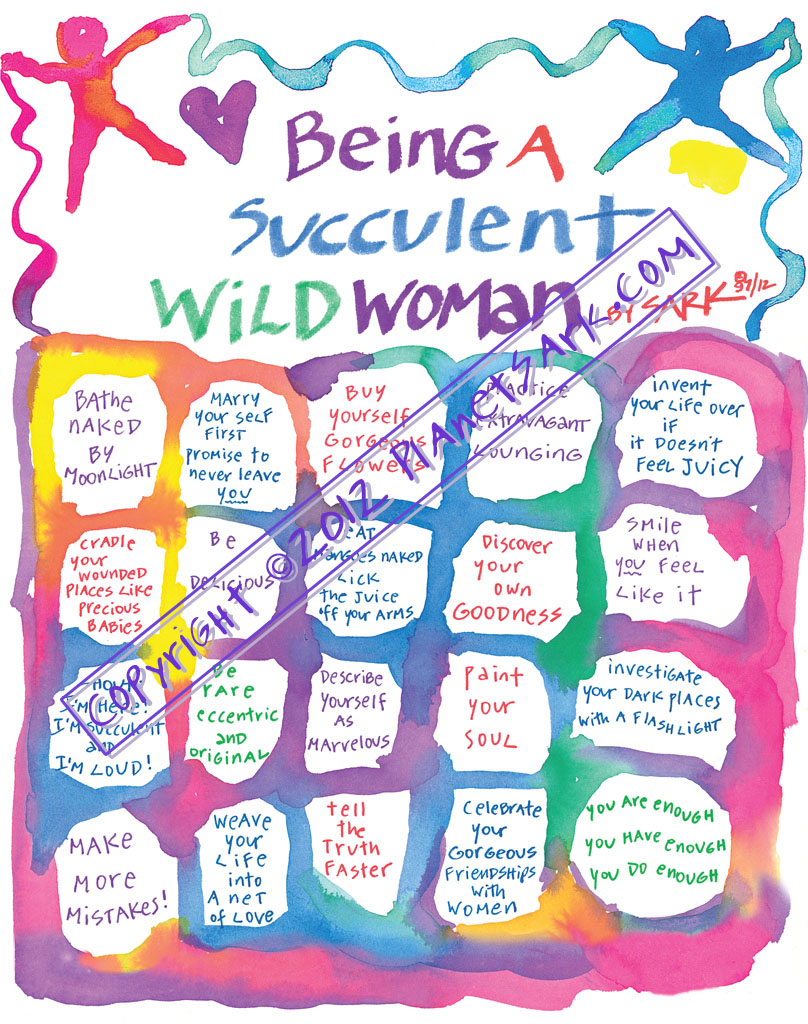 Being A
Succulent
WILD WOMAN
BY SARK 91/12
BATHE
NAKED
BY
MOONLIGHT
MARRY
your self
FIRST
promise to
never leave
you
Buy
yourself
Gorgeous
Flowers
PRACTICE
EXTRAVAGANT
LOUNGING
invent
your life over
if
it Doesn't
Feel JUICY
CRADLE
your
WOUNDED
PLACES LIKE
precious
BABIES
Be
Delicious
EAT
MANGOES NAKED
LICK
the JUICE
off your ARMS
Discover
your
own
GOODNESS
SMILE
WHEN
you FEEL
LIKE it
I'M HERE!
I'M Succulent
and
I'M LOUD!
Be
rare
eccentric
and
original
Describe
yourself
AS
MARVELOUS
paint
your
SOUL
investigate
your DARK places
with A FLASHLIGHT
MAKE
MORE
MISTAKES!
WEAVE
your
LIFE
into
A net
of LOVE
tell
the
Truth
Faster
Celebrate
your
Gorgeous
Friendships
with
WOMEN
you Are enough
you HAVE enough
you Do enough
COPYRIGHT © 2012 PLANETSARK.COM